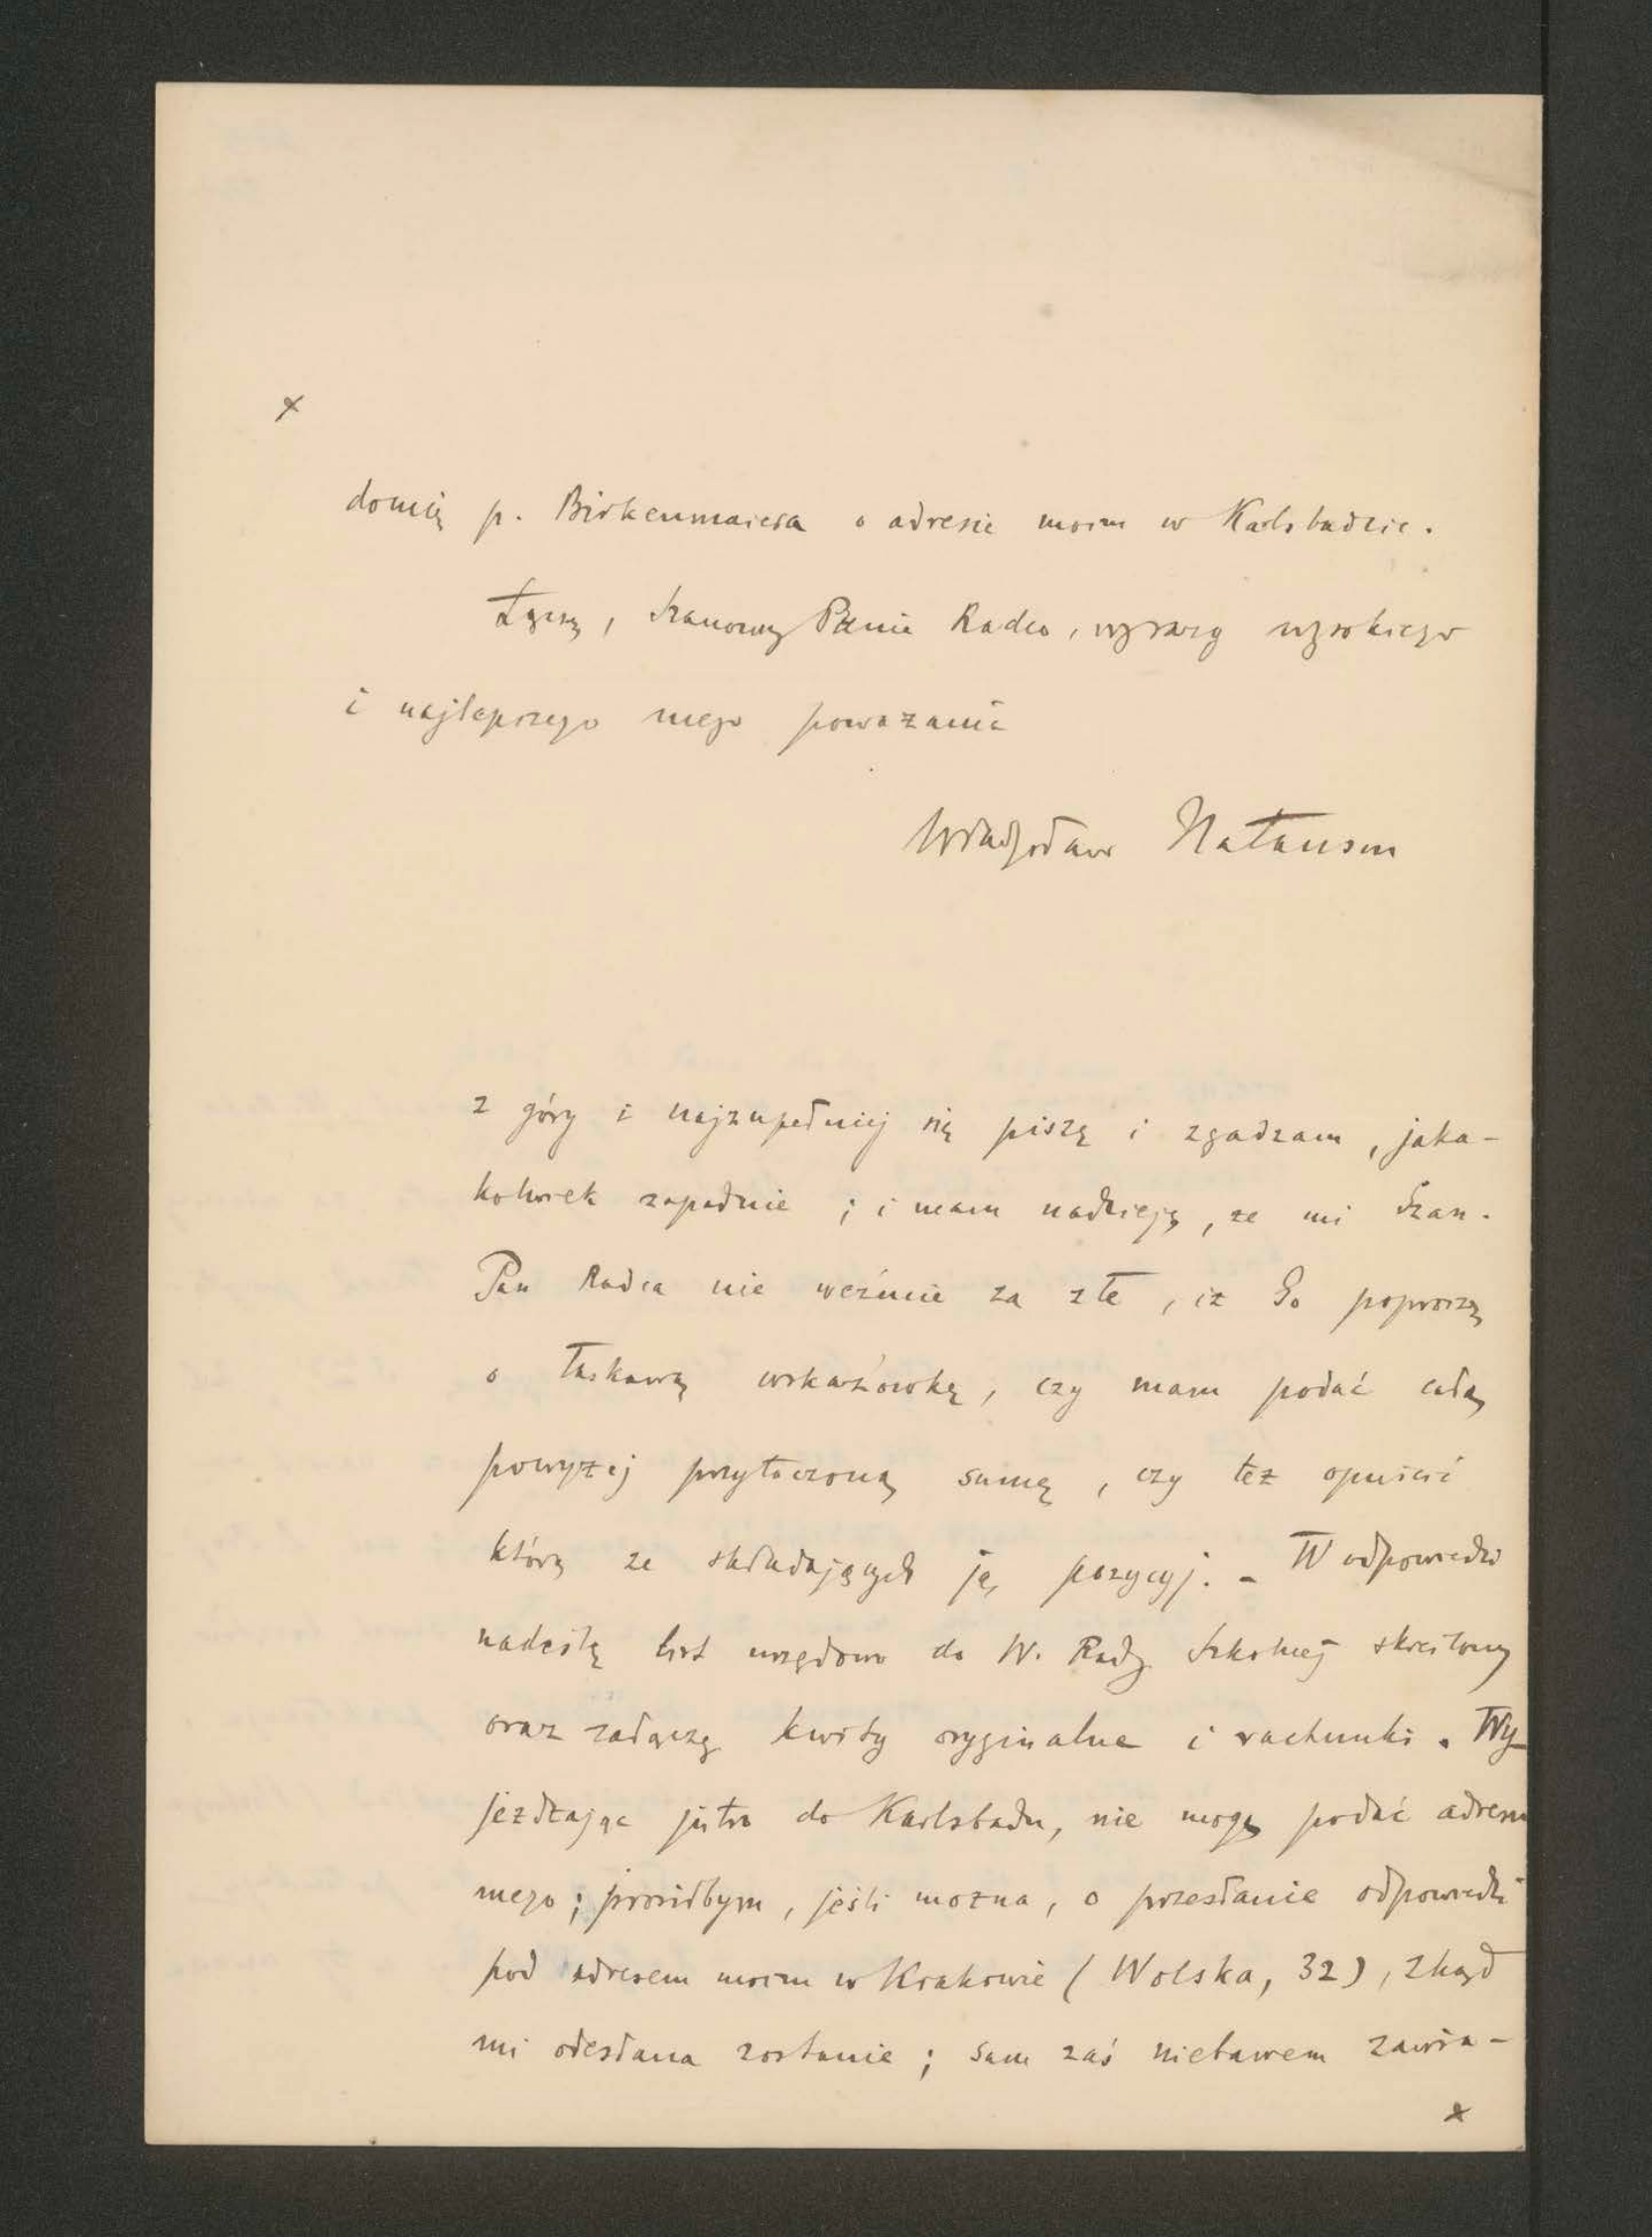 ×
domię p. Birkenmaiera o adresie moim w Karlsbadzie.
Łączę, Szanowny Panie Radco, wyrazy wysokiego
i najlepszego mego poważania
Władysław Natanson
z góry i najzupełniej się piszę i zgadzam, jaka-
kolwiek zapadnie ; i mam nadzieję, że mi Szan.
Pan Radca nie weźmie za złe, iż Go poproszę
o łaskawą wskazówkę, czy mam podać całą
powyżej przytoczoną sumę, czy też opuścić
którą ze składających ją pozycyj. – W odpowiedzi
nadeślę list urzędowo do W. Rady Szkolnej skreślony
oraz załączę kwity oryginalne i rachunki. Wy-
jeżdżając jutro do Karlsbadu, nie mogę podać adresu
mego ; prosiłbym, jeśli można, o przesłanie odpowiedzi
pod adresem moim w Krakowie (Wolska, 32), zkąd
mi odesłana zostanie ; sam zaś niebawem zawia-
×